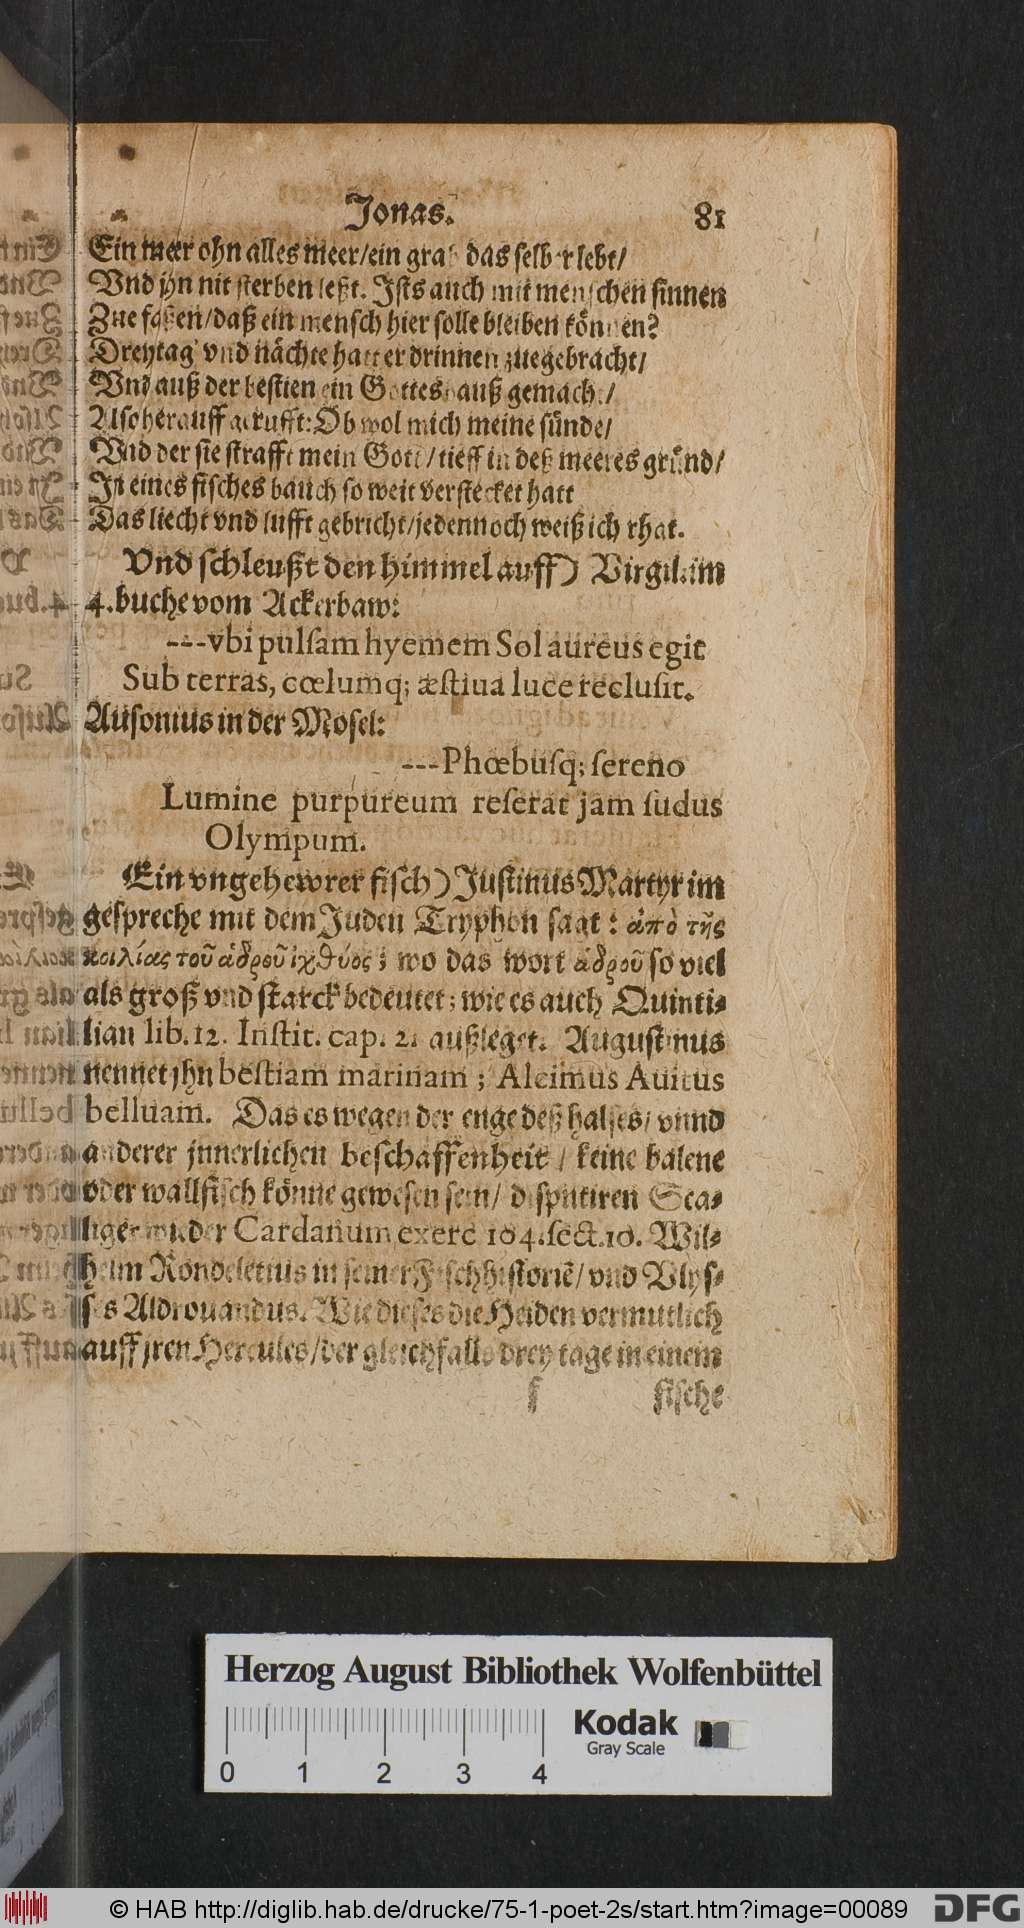 Jonas. 81
Ein meer ohn alles meer/ein grab das selber lebt/
Vnd jhn nit sterben leßt. Ists auch mit menschen sinnen
Zue faßen/daß ein mensch hier solle bleiben können?
Drey tag vnd nächte hatt er drinnen zuegebracht/
Vnd auß der bestien ein Gotteshauß gemacht/
Also herauff gerufft: Ob wol mich meine sünde/
Vnd der sie strafft mein Gott/tieff in deß meeres gründ/
In eines fisches bauch so weit verstecket hatt
Das liecht vnd lufft gebricht/jedennoch weiß ich rhat.
Vnd schleußt den himmel auff) Virgil. im
4. buche vom Ackerbaw:
---vbi pulsam hyemem Sol aureus egit
Sub terras, cœlumq; æstiua luce reclusit.
Ausonius in der Mosel:
---Phœbusq; sereno
Lumine purpureum reserat jam sudus
Olympum.
Ein vngehewrer fisch) Justinus Martyr im
gespreche mit dem Juden Tryphon sagt: ἀπὸ τῆς
κοιλίας τοῦ ἁδροῦ ἰχθύος; wo das wort ἁδροῦ so viel
als groß vnd starck bedeutet; wie es auch Quinti-
lian lib. 12. Instit. cap. 2. außleget. Augustinus
nennet jhn bestiam marinam; Alcimus Auitus
belluam. Das es wegen der enge deß halses/ vnnd
anderer jnnerlichen beschaffenheit/ keine balene
oder wallfisch könne gewesen sein/ disputiren Sca-
liger wieder Cardanum exerc 104. sect. 10. Wil-
helm Rondeletius in seiner Fischhistoriẽ/ vnd Vlys-
ses Aldrouandus. Wie dieses die Heiden vermutlich
auff jren Hercules/der gleichfalls drey tage in einem
f fische
Herzog August Bibliothek Wolfenbüttel
Kodak
Gray Scale
0 1 2 3 4
© HAB http://diglib.hab.de/drucke/75-1-poet-2s/start.htm?image=00089 DFG